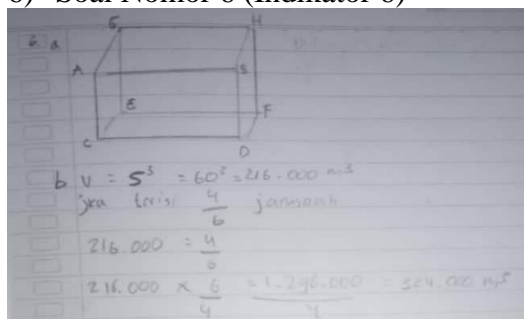 6) Soal Nomor 6 (Indikator 6)
6. a
G H
A B
E F
C D
b V = S³ = 60³ = 216.000 m³
jka terisi 4/6
216.000 : 4/6
216.000 × 6/4 = 1.296.000/4 = 324.000 m³